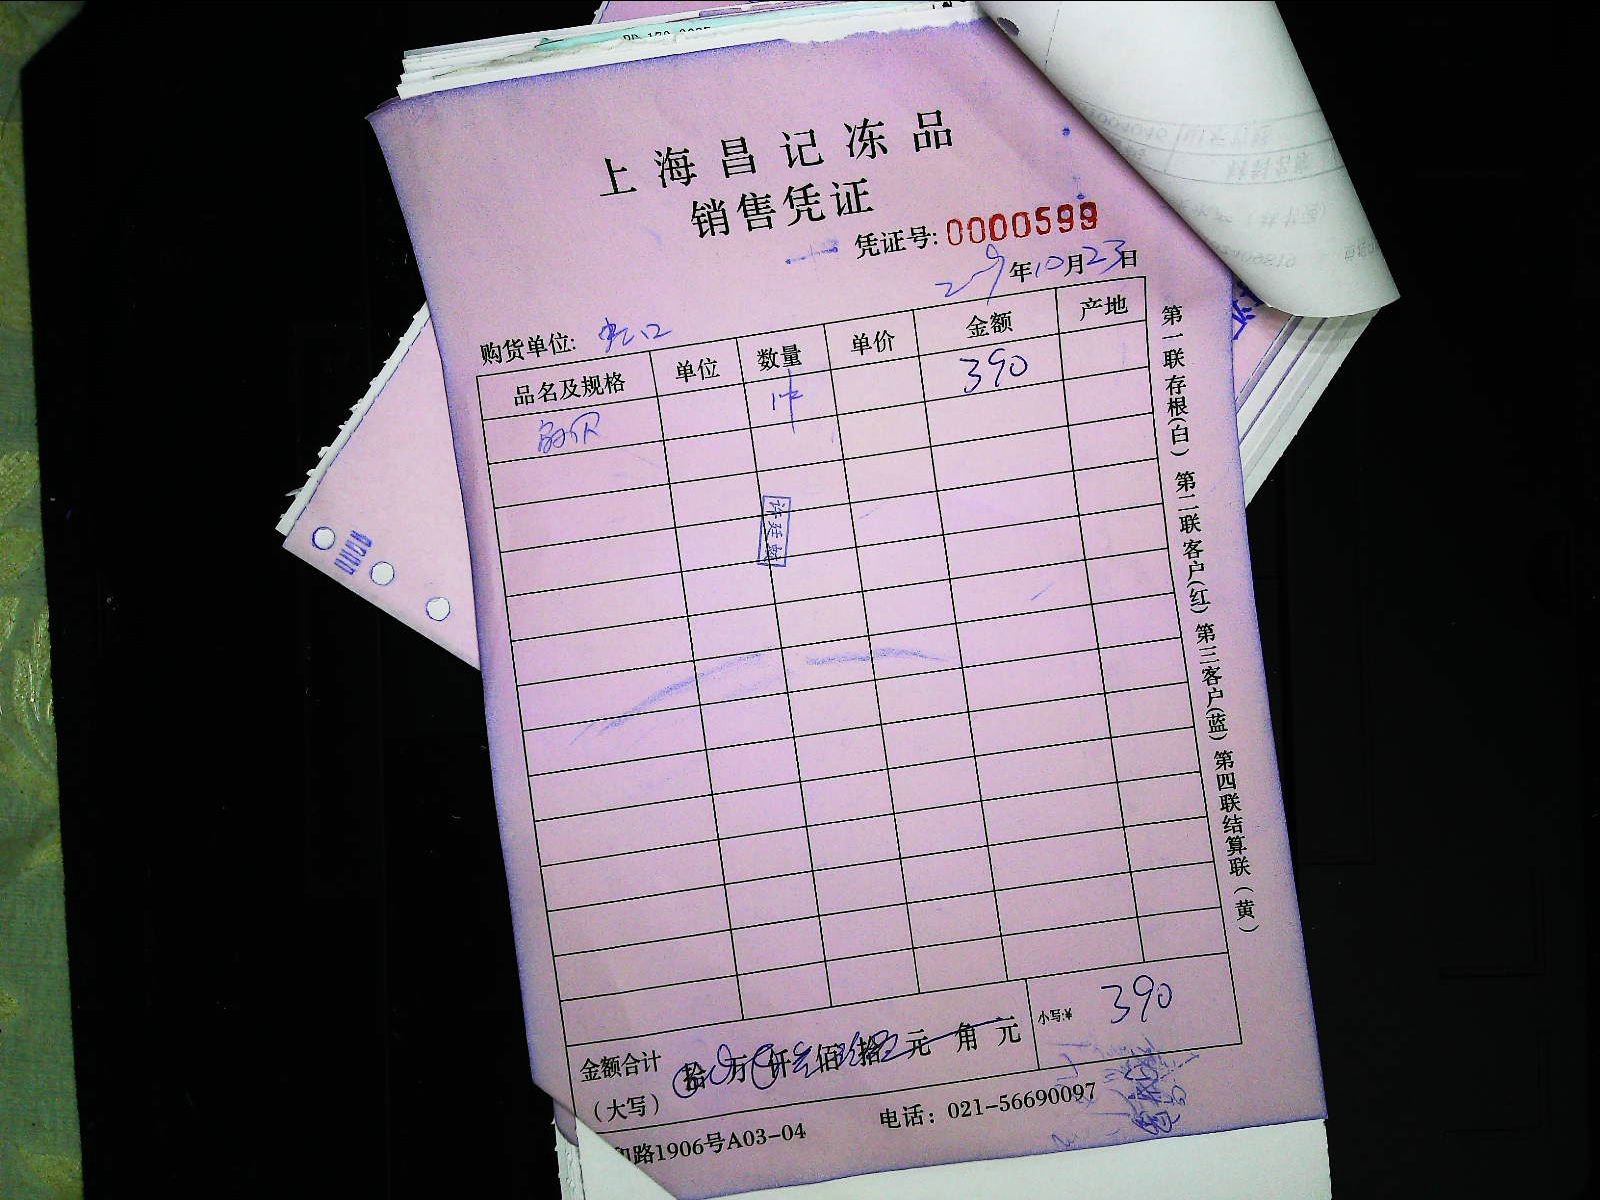 上海昌记冻品
销售凭证
凭证号: 0000599
年10月23日
购货单位: 虹口
品名及规格 单位 数量 单价 金额 产地
390
许廷
金额合计 拾 万 仟 佰 拾 元 角 元 小写:¥ 390
(大写)
路1906号A03-04 电话: 021-56690097
第一联存根(白) 第二联客户(红) 第三客户(蓝) 第四联结算联(黄)